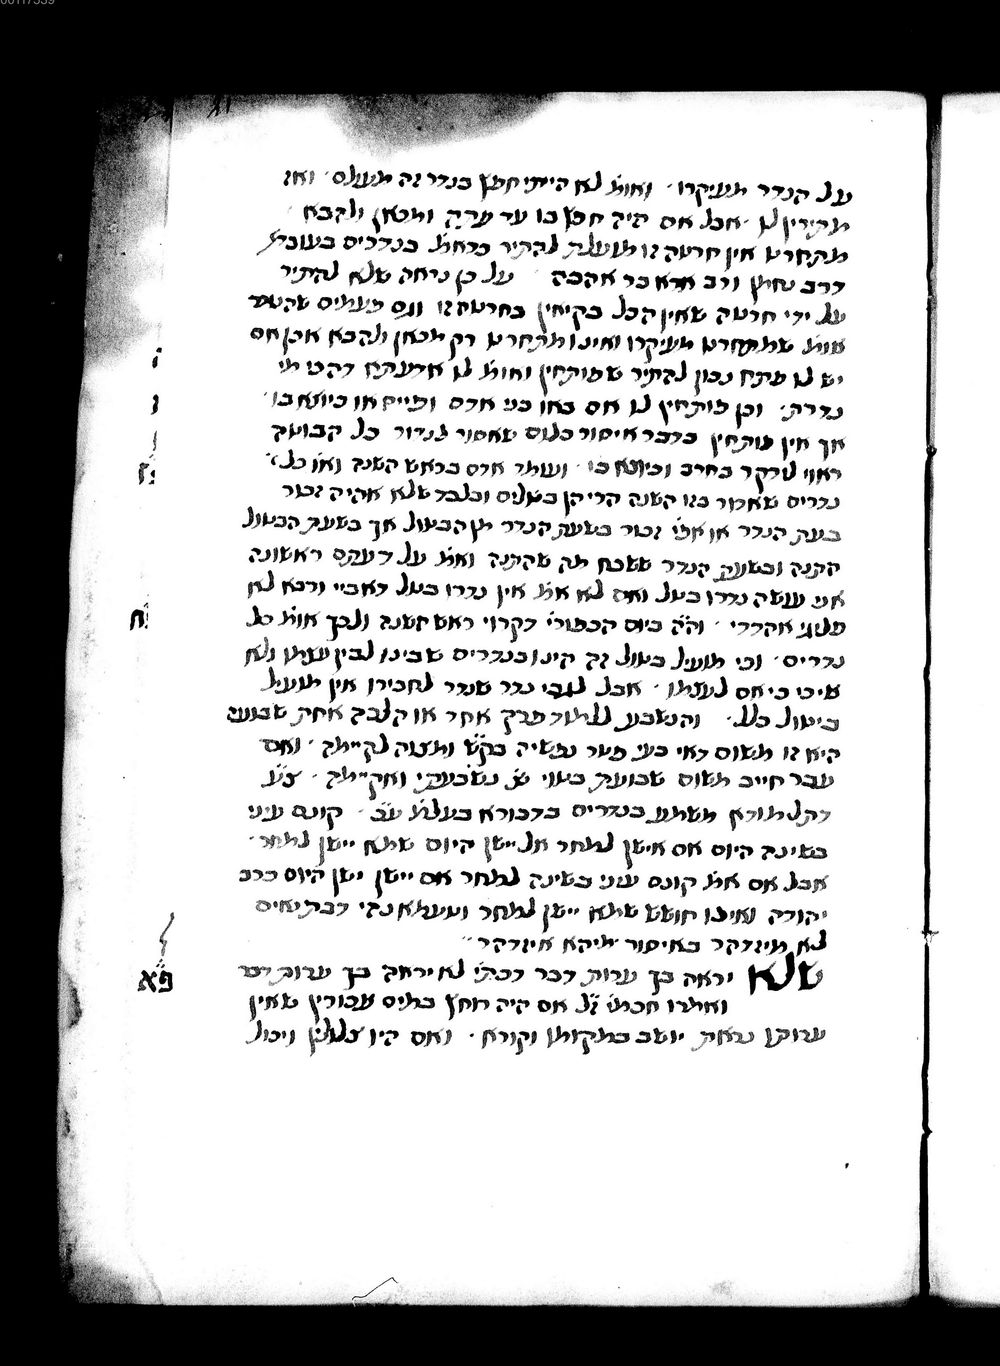 על הנדר מעיקרו ׳ ואומ׳ לא הייתי חפץ בנדר זה מעולם ׳ ואז
מתירין לו ׳ אבל אם היה חפץ בו עד עתה ומכאן ולהבא ׳
מתחרט אין חרטה זו מועלת להתיר כדאמ׳ בנדרים בעובדא
דרב נחמן ורב אדא בר אהבה ׳ על כן נראה שלא להתיר
על ידי חרטה שאין הכל בקיאין בחרטה זו וגם פעמים
אומ׳ שמתחרט מעיקרו ואינו מתחרט רק מכאן ולהבא אכן אם
יש לו פתח נכון להתיר שפותחין ואומ׳ לו אדעתא דהכי מי
נדרת׳ וכן פותחין לו אם באו בני אדם ופייסו או כיוצא בו׳
אך אין פותחין בדבר איסור כלום שאסור לנדור כל הבוטה
ראוי לידקר בחרב וכיוצא בו ׳ ועומד אדם בראש השנה ואו׳ כל
נדרים שאדור בזו השנה הרי הן בטלים ובלבד שלא אהיה זכור
בעת הנדר או אפי׳ זכור בשעת הנדר מן הבטול אך בשעת הבטול
התנה ובשעת הנדר ששכח מה שהתנה ואמ׳ על דעתם ראשונה
אני עושה נדרו בטל ואם לא אמ׳ אין נדרו בטל דאביי ורבא לא
פליגי אהדדי ׳ וה״ה ביום הכפורי׳ דקרוי ראש השנה ולכך אומ׳ כל
נדרים ׳ וכי מועיל בטול זה היינו בנדרים שבינו לבין עצמו ולא
שיכי כי אם לעצמו ׳ אבל לגבי נדר שנדר לחבירו אין מועיל
ביטול כלל ׳ והנשבע ללמוד פרק אחד או הלכה אחת שבועה
היא זו משום דאי בעי פטר נפשיה בק״ש ומצוה לקיימה ׳ ואם
עבר חייב משום שבועת בטוי שנ׳ נשבעתי ואקיימה ׳ צ״ע
דתלמודא משמע בנדרים בדבורא בעלמ׳ ע״ב ׳ קונם עיני
בשינה היום אם אישן למחר אל יישן היום שמא יישן למחר ׳
אבל אם אמ׳ קונם עיני בשינה למחר אם יישן ישן היום כרב
יהודה ואינו חושש שמא יישן למחר וטעמא דבתנאים
לא מיזדהר באיסור מיהא איזדהר ׳׳
שלא יראה בך ערות דבר דכתי׳ לא יראה בך ערות דבר
ואמרו חכמי׳ ז״ל אם היה רוחץ במים עכורין שאין
ערותו נראת יושב במקומו וקורא ׳ ואם היו צלולין ויכול
פ״א